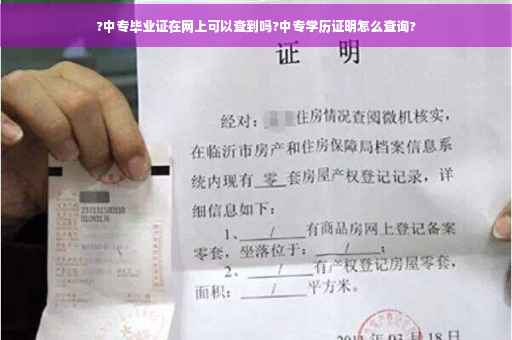 ?中专毕业证在网上可以查到吗?中专学历证明怎么查询?
证 明
经对:住房情况查阅微机核实,
在临沂市房产和住房保障局档案信息系
统内现有 零 套房屋产权登记记录,详
细信息如下:
1、 / 有商品房网上登记备案
零套,坐落位于: / ;
2、 / 有产权登记房屋零套,
面积: / 平方米。
03 月 18 日